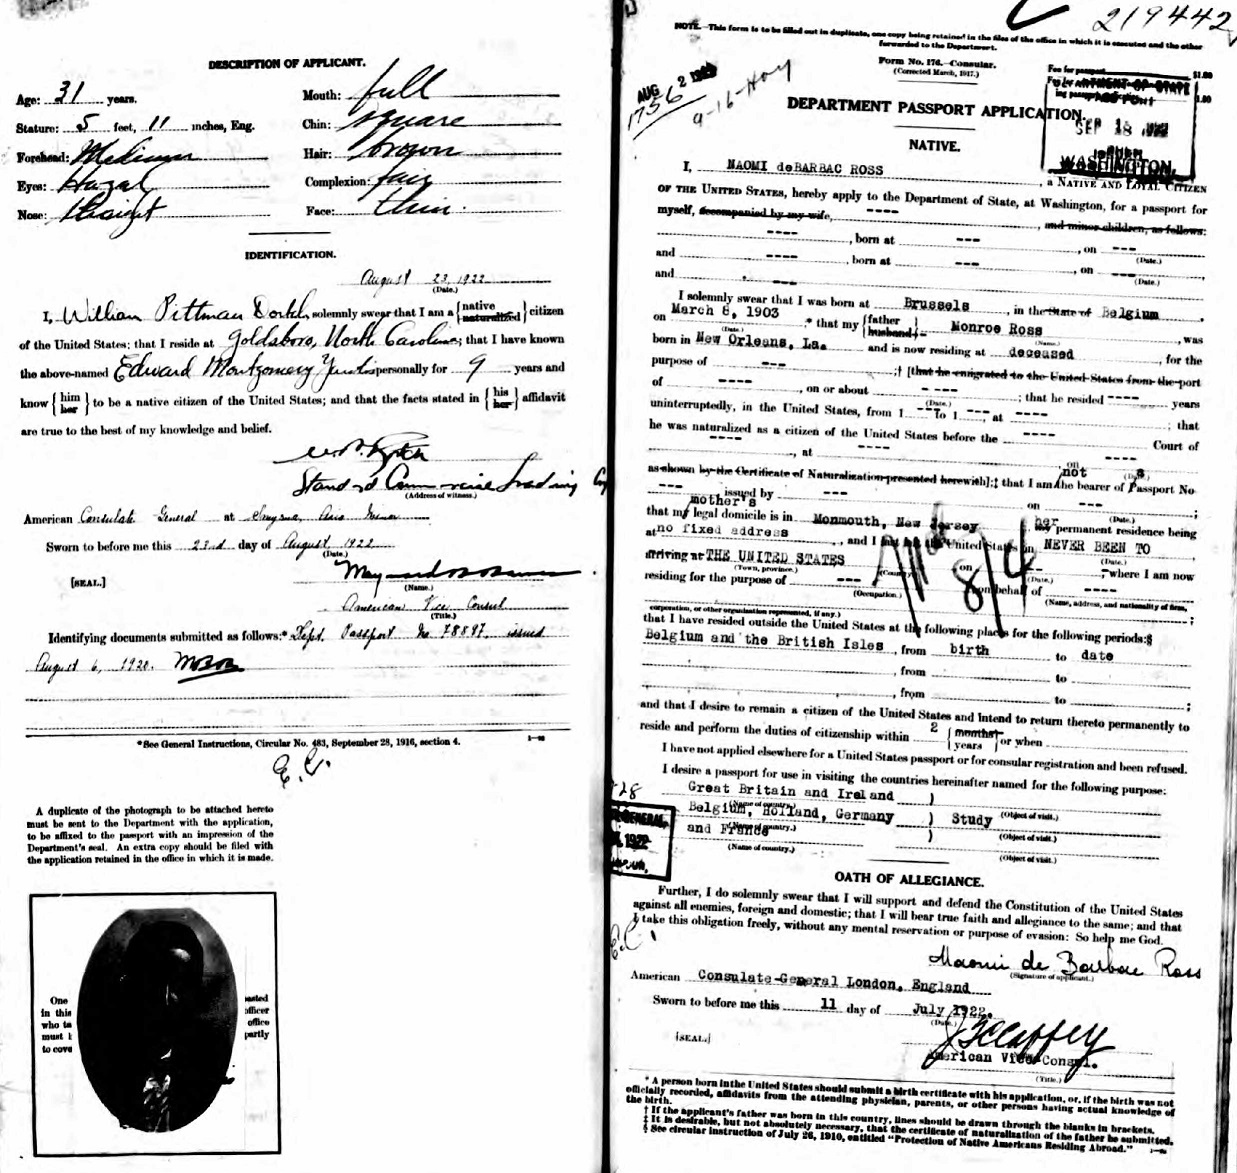 DESCRIPTION OF APPLICANT.
Age: 31 years.
Stature: 5 feet, 11 inches, Eng.
Forehead: Medium
Eyes: Hazel
Nose: Straight
Mouth: full
Chin: square
Hair: brown
Complexion: fair
Face: thin
IDENTIFICATION.
August 23, 1922
(Date.)
I, William Pittman Dortch, solemnly swear that I am a {native naturalized} citizen
of the United States; that I reside at Goldsboro, North Carolina; that I have known
the above-named Edward Montgomery personally for 9 years and
know {him her} to be a native citizen of the United States; and that the facts stated in {his her} affidavit
are true to the best of my knowledge and belief.
Standard Commercial Trading Co
(Address of witness.)
American Consulate General at Smyrna, Asia Minor
Sworn to before me this 23rd day of August, 1922
(Date.)
[SEAL.]
(Name.)
American Vice Consul
(Title.)
Identifying documents submitted as follows:* Dept. Passport No. 78897 issued
August 6, 1920.
*See General Instructions, Circular No. 483, September 28, 1916, section 4.
E. G.
A duplicate of the photograph to be attached hereto
must be sent to the Department with the application,
to be affixed to the passport with an impression of the
Department's seal. An extra copy should be filed with
the application retained in the office in which it is made.
One
in this
who ta
must
to cove
pasted
officer
office
partly
219442
NOTE.—This form is to be filled out in duplicate, one copy being retained in the files of the office in which it is executed and the other
forwarded to the Department.
Form No. 176.—Consular.
(Corrected March, 1917.)
Fee for passport $1.00
1.00
AUG 2 1922
1756
9-16-Hoy
DEPARTMENT OF STATE
PASSPORT
SEP 18 1922
WASHINGTON.
DEPARTMENT PASSPORT APPLICATION.
NATIVE.
I, NAOMI deBARBAC ROSS, a NATIVE AND LOYAL CITIZEN
OF THE UNITED STATES, hereby apply to the Department of State, at Washington, for a passport for
myself, accompanied by my wife, ----, and minor children, as follows:
----, born at ---, on ---
(Date.)
and ----, born at ----, on ---
(Date.)
and
(Date.)
I solemnly swear that I was born at Brussels, in the State of Belgium,
on March 6, 1903 * that my {father husband} Monroe Ross, was
(Date.) (Name.)
born in New Orleans, La. and is now residing at deceased, for the
purpose of ---;† [that he emigrated to the United States from the port
of ----, on or about ----; that he resided ---- years
(Date.)
uninterruptedly, in the United States, from 1---To 1---, at ----; that
he was naturalized as a citizen of the United States before the ---- Court of
----, at ---- on ----
(Date.)
as shown by the Certificate of Naturalization presented herewith];‡ that I am not the bearer of Passport No
--- issued by --- on ---
(Date.)
that my mother's legal domicile is in Monmouth, New Jersey her permanent residence being
at no fixed address, and I the United States on NEVER BEEN TO
(Date.)
arriving at THE UNITED STATES on, where I am now
(Town, province.) (Country.) (Date.)
8/4
residing for the purpose of --- on behalf of ----
(Occupation.) (Name, address, and nationality of firm,
corporation, or other organization represented, if any.)
that I have resided outside the United States at the following places for the following periods:§
Belgium and the British Isles, from birth to date
, from to ;
, from to ;
and that I desire to remain a citizen of the United States and intend to return thereto permanently to
reside and perform the duties of citizenship within 2 {months years} or when
I have not applied elsewhere for a United States passport or for consular registration and been refused.
I desire a passport for use in visiting the countries hereinafter named for the following purpose:
Great Britain and Ireland )
(Name of country.) (Object of visit.)
Belgium, Holland, Germany ) Study
(Name of country.) (Object of visit.)
and France )
(Name of country.) (Object of visit.)
GENERAL,
1922
OATH OF ALLEGIANCE.
Further, I do solemnly swear that I will support and defend the Constitution of the United States
against all enemies, foreign and domestic; that I will bear true faith and allegiance to the same; and that
I take this obligation freely, without any mental reservation or purpose of evasion: So help me God.
Naomi de Barbac Ross
(Signature of applicant.)
American Consulate-General London, England
Sworn to before me this 11 day of July 1922.
(Date.)
[SEAL.]
American Vice Consul.
(Title.)
* A person born in the United States should submit a birth certificate with his application, or, if the birth was not
officially recorded, affidavits from the attending physician, parents, or other persons having actual knowledge of
the birth.
† If the applicant's father was born in this country, lines should be drawn through the blanks in brackets.
‡ It is desirable, but not absolutely necessary, that the certificate of naturalization of the father be submitted.
§ See circular instruction of July 26, 1910, entitled "Protection of Native Americans Residing Abroad."